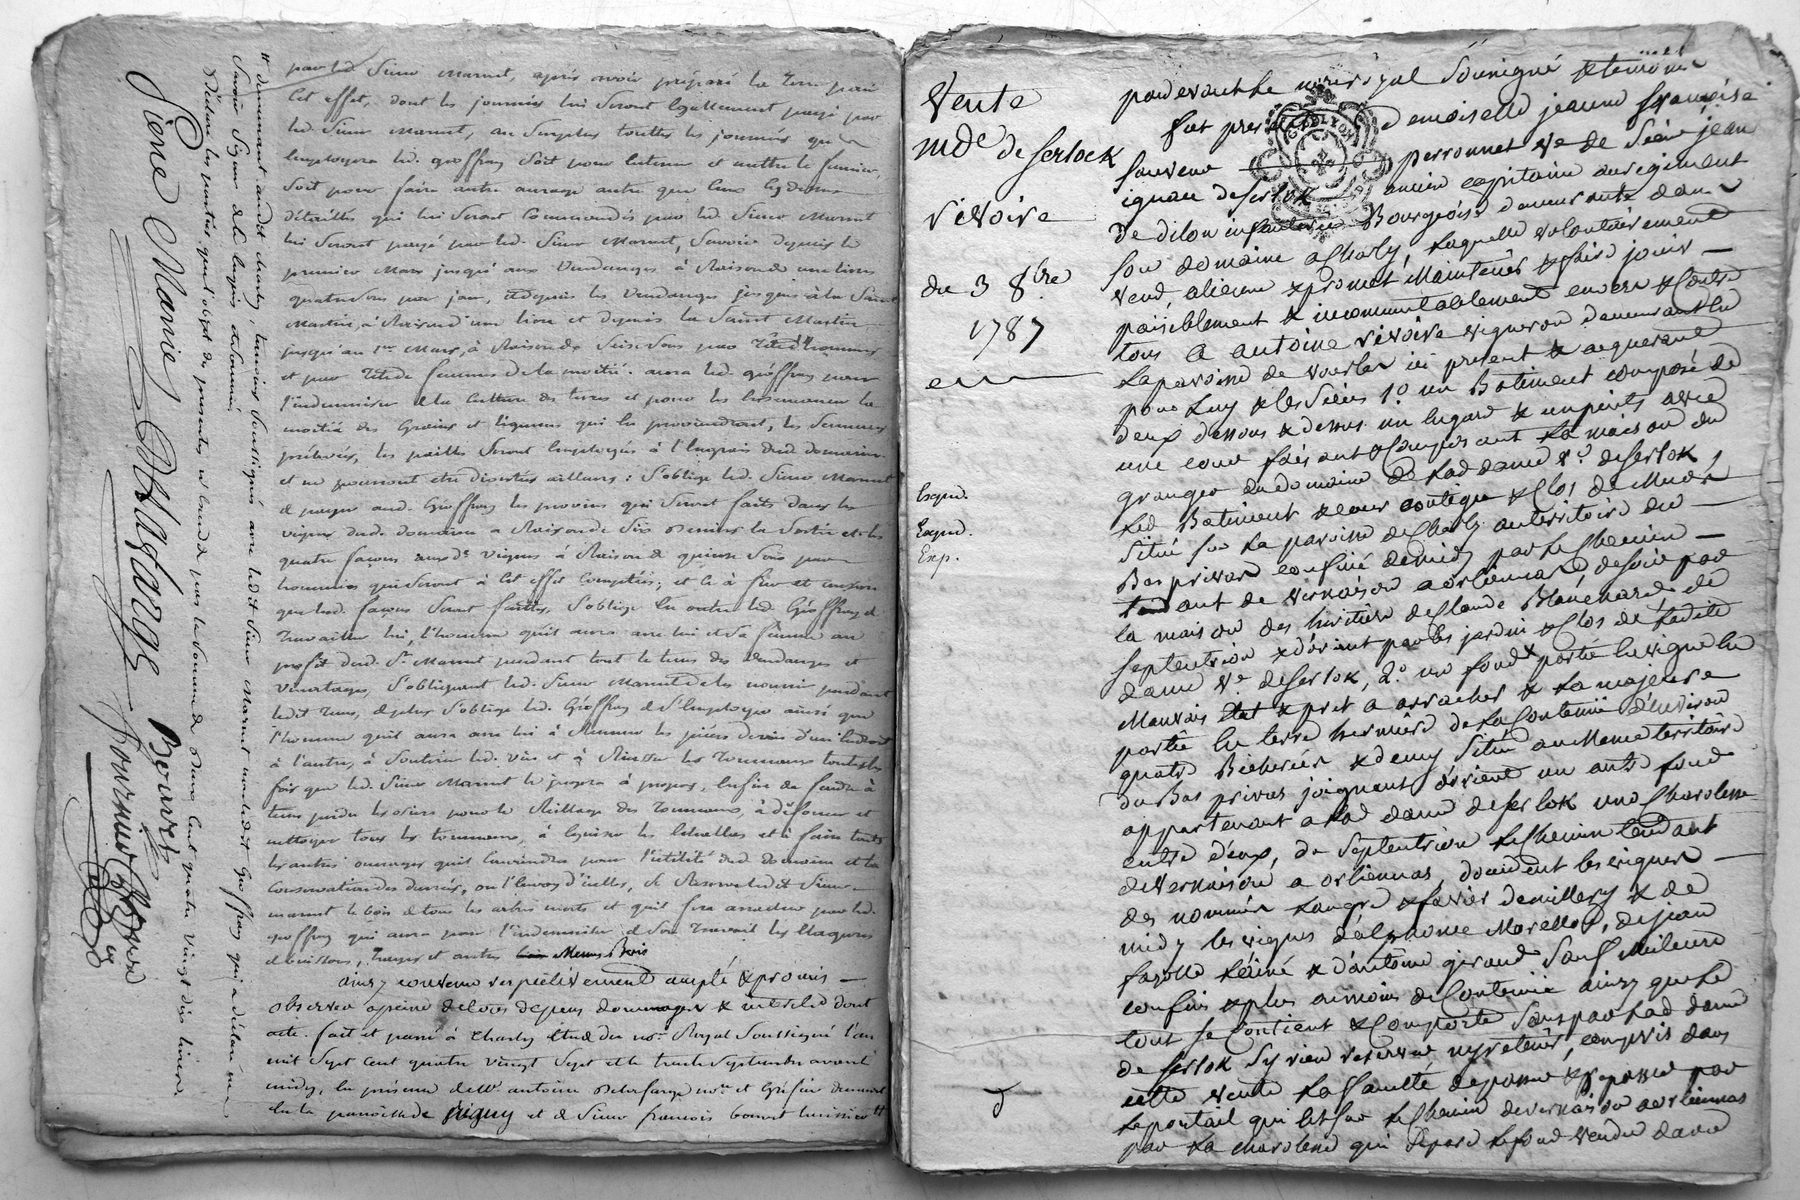 par led. Sieur Marmet, après avoir préparé la Terre pour
Cet effet, dont les journées lui Seront Egallement payé par
led. Sieur Marmet, au Surplus touttes les journées que
Employera led. geoffray Soit pour Entener et mettre le fumier,
Soit pour faire autre ouvrage autre que Ceux Cy dessus
détaillés qui lui Seront Commandés par led. Sieur Marmet
lui Seront payé par led. Sieur Marmet, Savoir depuis le
premier Mars jusqu'aux Vendanges à Raison de
quatre Sous par jour, et depuis les Vendanges jusques à la Saint
Martin, à Raison d'une livre et depuis la Saint Martin
jusqu'au 1er Mars, à Raison de Seize Sous par Tête d'hommes
et par Tête de femmes de la moitié. aura led. géoffray pour
l'indemniser de la Culture des terres et pour les
moitié des Grains et légumes qui en proviendront, les Semences
prélevées, les pailles Seront Employées à l'Engrais dud. domaine
et ne pourront être ailleurs : S'oblige led. Sieur Marmet
de payer aud. Géoffray les provins qui Seront faits dans les
vignes dud. domaine a Raison de Six deniers la et les
quatre façons aux d. Vignes à Raison de quinze Sous par
hommées qui Seront à Cet effet Comptées ; et Ce à fur et mesure
que led. façons Seront faittes, S'oblige En outre led. Géoffray de
Travailler lui, l'homme qu'il aura avec lui et Sa femme au
profit dud. Sr. Marmet pendant tout le tems des Vendanges et
S'obligeant led. Sieur Marmet de les nourrir pendant
ledit tems, de plus S'oblige led. Géoffray de S'Employer ainsi que
l'homme qu'il aura avec lui à les pièces de vin d'un Endroit
à l'autre, à Soutirer led. Vin et à les Tonneaux toutes les
fois que led. Sieur Marmet le jugera à propos, Enfin de fendre à
tems perdu les osiers pour le Reillage des Tonneaux, à défoncer et
nettoyer tous les tonneaux, à les et à faire touts
les autres ouvrages qu'il Conviendra pour l'utilité dud. domaine et la
Conservation des denrées, ou l'Envoy d'icelles, Se Reserve ledit Sieur
marmet le bois de tous les arbres morts et qu'il fera arracher par led.
geoffray qui aura pour l'indemniser de Son Travail les
de buissons, et autres Menus Bois
ainsy convenu respectivement accepté & promis
observer a peine de tous depens dommages & interets dont
acte. fait et passé à Charly Etude du nore. Royal Soussigné l'an
mil Sept Cent quatre vingt Sept et le trente Septembre avant
midy, En présence de Mr. antoine Delafarge nore. et Gréfier demeurant
En la paroisse de Irigny et de Sieur francois bouvet huissier #
# demeurant audit charly, témoins Soussignés avec ledit Sieur Marmet non ledit Geoffray qui a déclaré ne
Savoir Signer de ce Enquis et Sommé.
déclare les parties que l'objet des presentes est Evalué par la Somme de
Piere Marie
Delafarge
Bouvet
Vente
mde de ferlock
rivoire
du 3 8bre
1787
Expd.
Expd.
Exp.
pardevant Le nore royal Sousigné & temoins
fut presente Demoiselle jeanne françoise
perronnet ve de Sieur jean
ignace de ferlok ancien capitaine au regiment
de dilon infanterie Bourgeoise demeurante dans
Son domaine a Charly, Laquelle volontairement
vend, aliene & promet Maintenir & faire jouir
paisiblement & incommutablement envers & Contre
tous a antoine rivoire vigneron demeurant En
La paroisse de vourles ici present & acquerant
pour Luy & les Siens 1o un Batiment composé de
deux dessous & dessus un hugard & un puits avec
une cour faisant & Composant La maison du
granger du domaine de Lad dame ve. de ferlok,
Led Batiment & cour contigu & Clos de Murs
Situé Sur La paroisse de Charly au territoire du
Bas privas confiné de midy par Le Chemin
tendant de vernaison a orlienas, de Soir par
la maison des heritiers de Claude Blanchard de
Septentrion & d'orient par les jardin & Clos de Ladite
dame ve. de ferlok, 2o un fond partie En vigne En
Mauvais état & pret a arracher & La majeure
partie En terre herniere de La Contenue d'Environ
quatre Bicherées & demy Situé au Meme territoire
du Bas privas joignant d'orient un autre fond
appartenant a Lad dame de ferlok une Charoliere
entre d'eux, de Septentrion Le Chemin tendant
de vernaison a orlienas, d'occident les vignes
des nommés Laugre & favier de millery & de
midy les vignes d'alphonse Morellon, de jean
fayolle L'ainé & d'antoine giraud Sauf Meilleurs
confins & plus ou moins de Contenue ainsy que Le
tout Se Contient & Comporte Sans par Lad dame
de ferlok Sy rien reserver ny retenir, compris dans
cette vente La faculté de passer & repasser par
Le portail qui Est Sur Le Chemin de vernaison a orlienas
par La charoliere qui Separe Le fond vendu d'avec